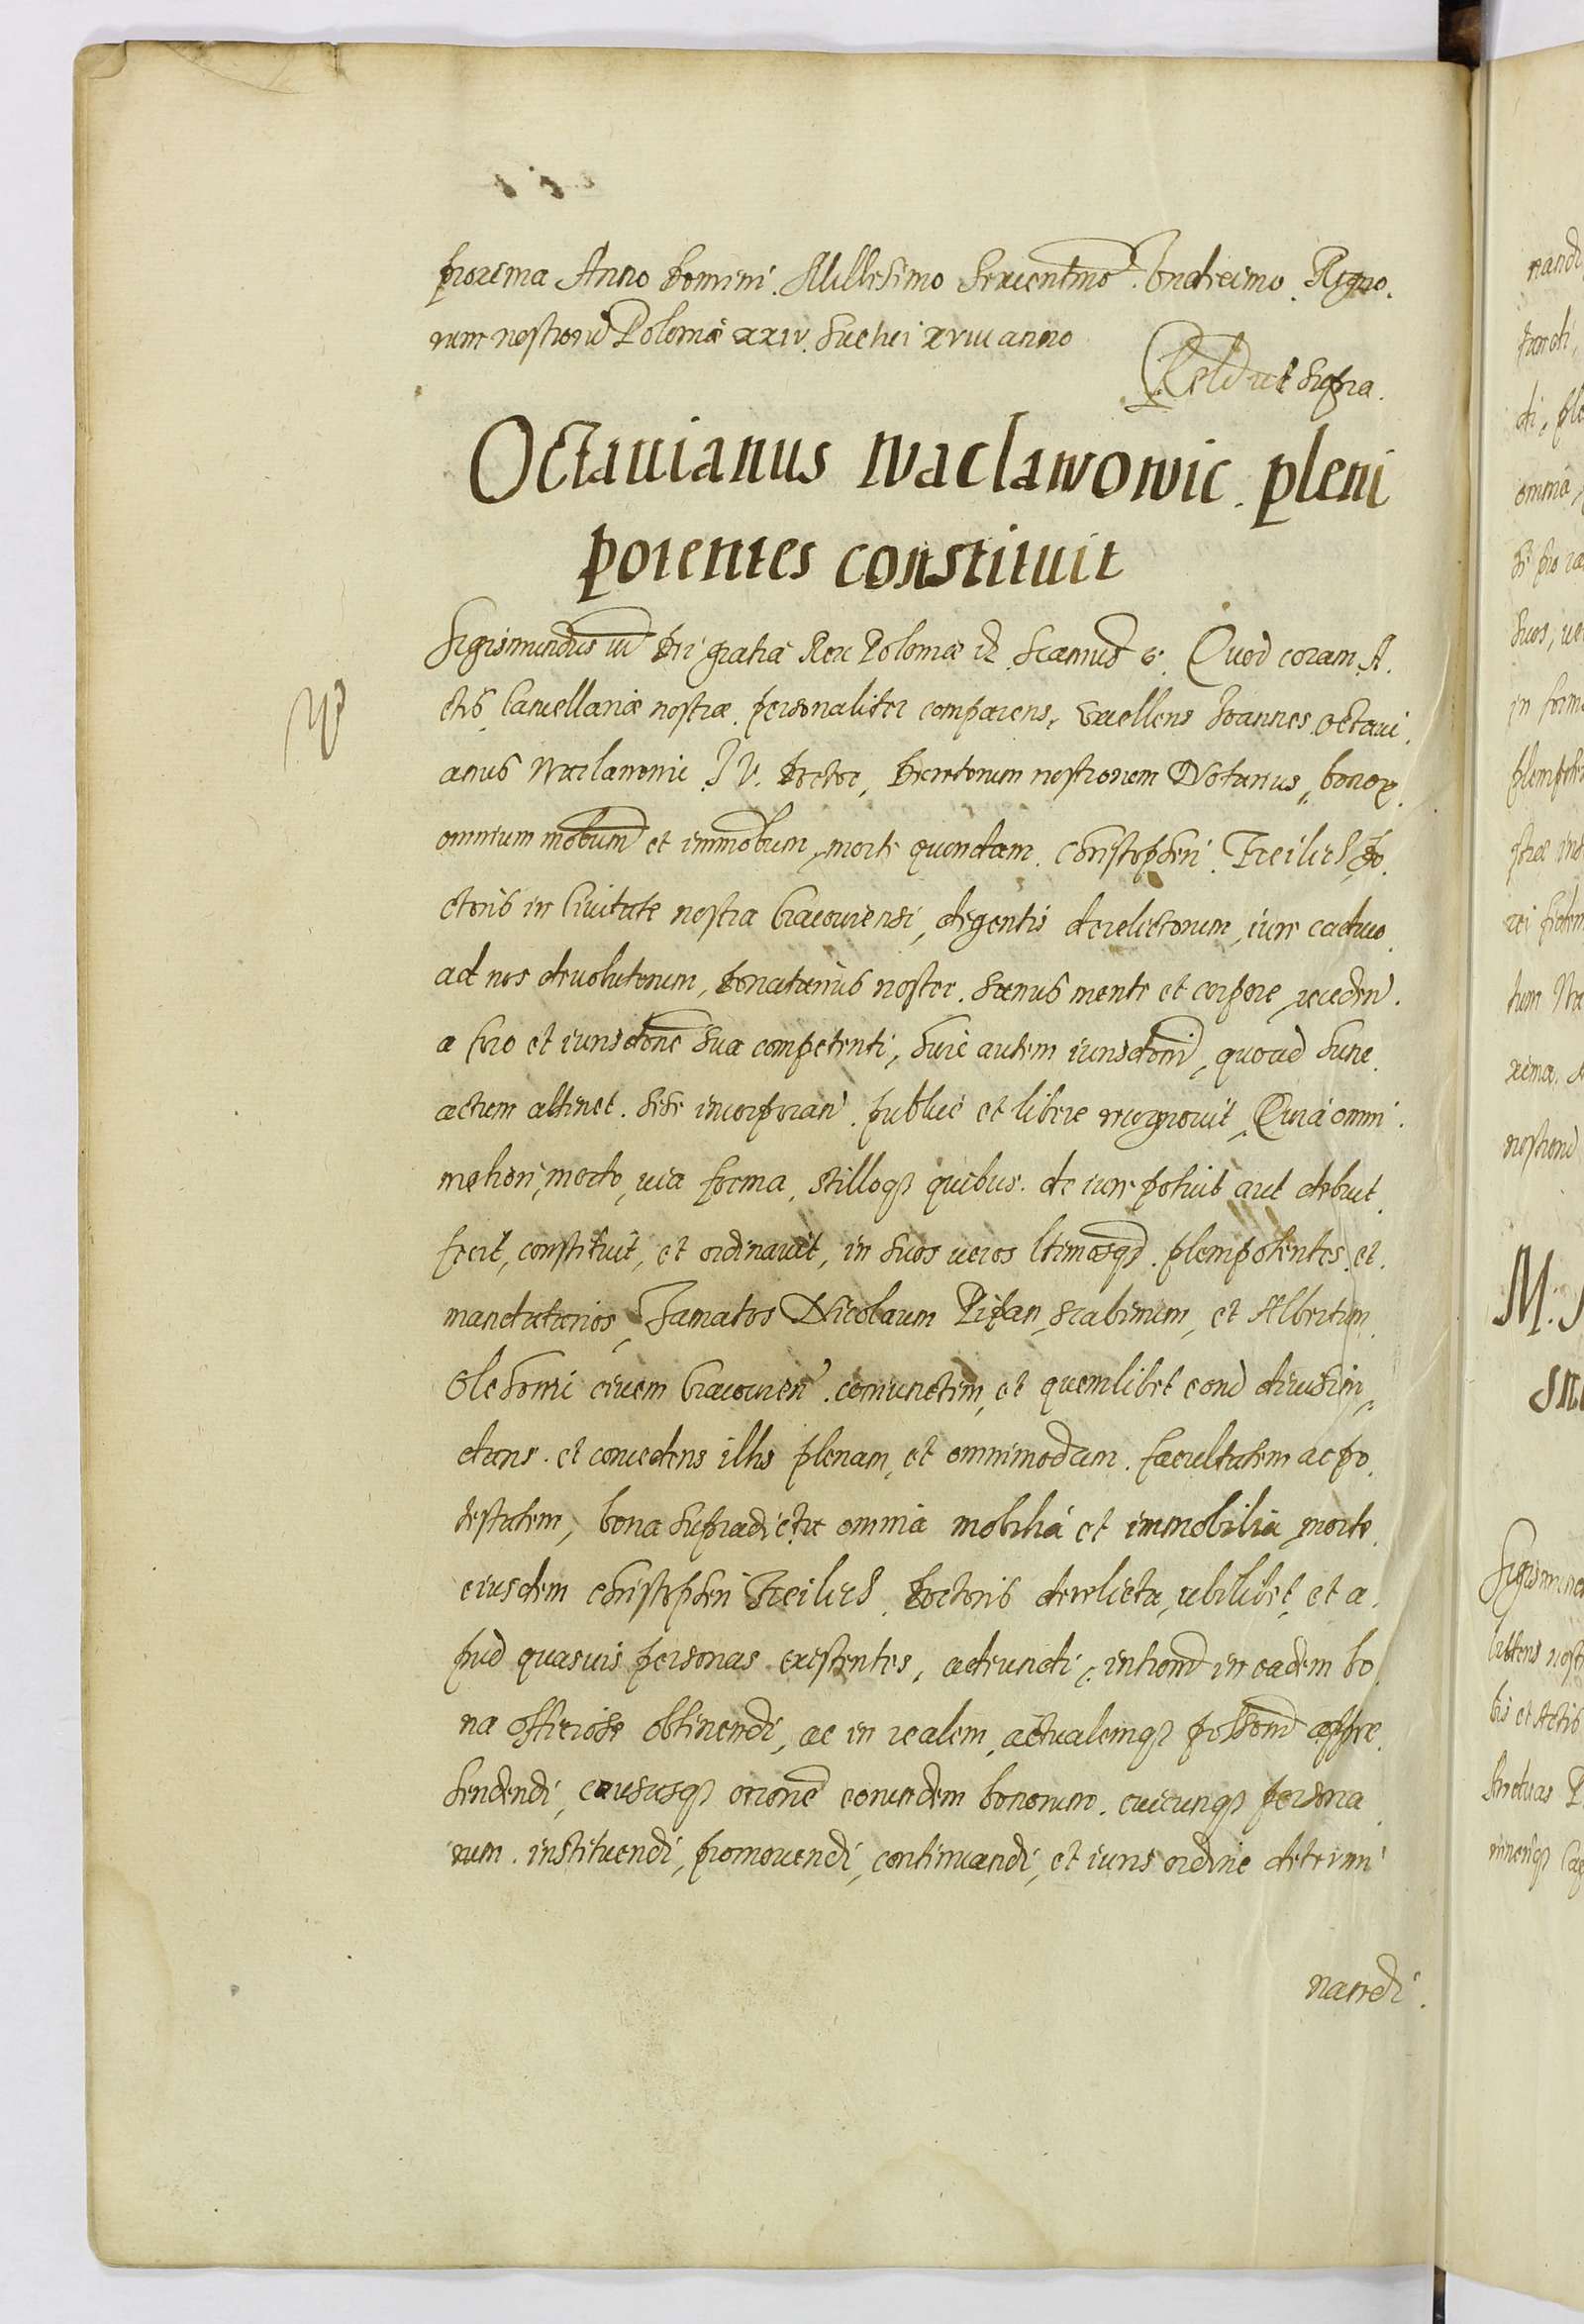 proxima Anno Domini Millesimo Sexcentmo Vndecimo. Regno.
rum nostrorum Poloniæ XXIV. Suetiei XVIII anno
Rel ut supra.
Octauianus Waclawowic pleni
potentes constituit
Sigismundus III Dei gratia Rex Poloniæ Sciamus Quod coram A.
ctis Cancellariæ nostræ personaliter comparens, Excellens Ioannes Octaui.
anus Waclawowic I V. Doctor, Decretorum nostrorum Notarius, bonor.
omnium mobium et immobium, morte quondam Christopheri Treiluch Do.
ctoris in Ciuitate nostra Cracouiensi, degentis derelictorum, iure caduco
ad nos deuolutorum, Donatarius noster. sanus mente et corpore, receden.
a foro et iurisdone sua competenti, huic autem iurisdoni, quoad hunc
actum attinet. sese incorporan. publice et libere recognouit, Quia omni.
meliori, modo, via forma, stilloq quibus de iure potuit aut debuit
fecit, constituit, et ordinauit, in suos veros ltimosq. plenipotentes et.
mandatarios, Famatos Nicolaum Pipan, scabinum, et Albertum
Olehowi ciuem Cracouien. coniunctim, et quemlibet eorum diuisim,
dans. et concedens illis plenam, et omnimodam. facultatem ac po.
testatem, bona supradicta omnia mobilia et immobilia, morte
eiusdem Christopheri Treiluch. Doctoris derelicta, vbilibet, et a.
pud quasuis personas existentes, adeundi, introm in eadem bo
na officiose obtinendi, ac in realem, actualemq possom appre
hendendi, causasq orione eorundem bonorum. cuicunq persona
rum. instituendi, promouendi, continuandi, et iuris ordine determi
nandi.